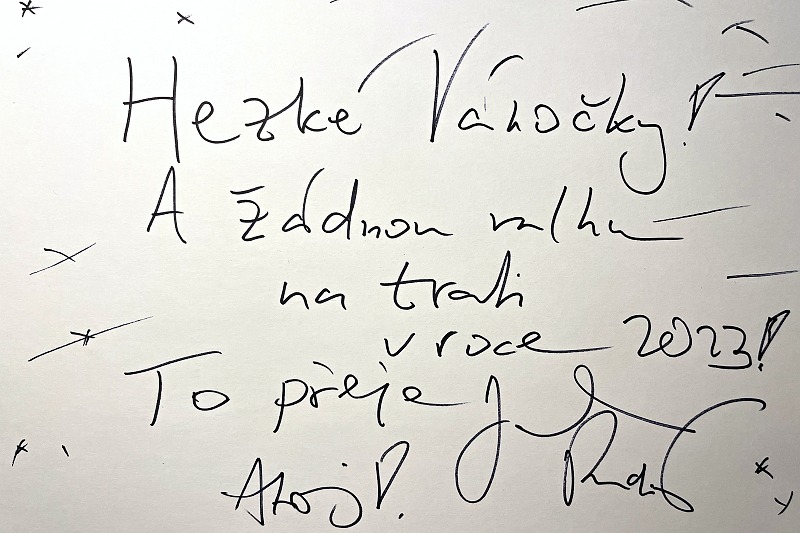 Hezké Vánočky!
A žádnou válku
na trati
v roce 2023!
To přeje
Ahoj P.